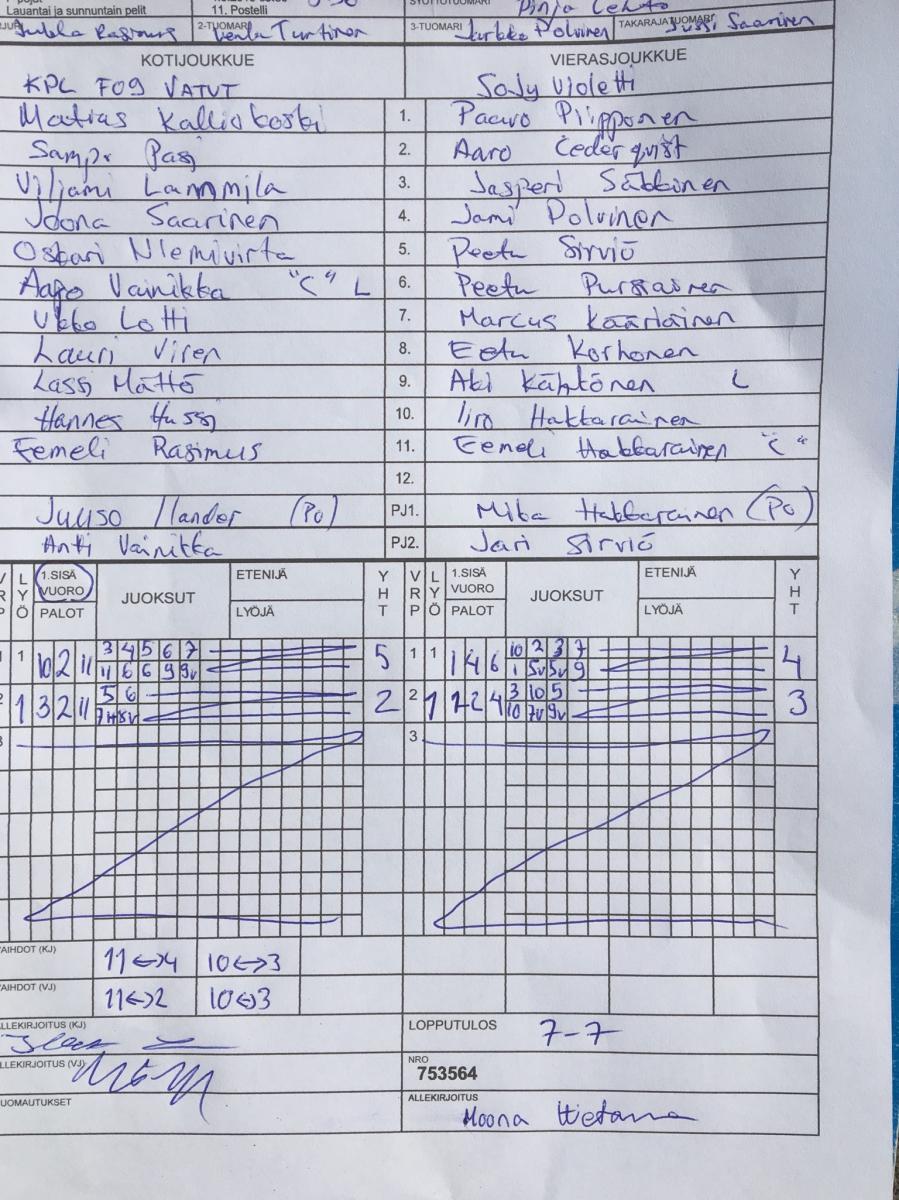 Lauantai ja sunnuntain pelit 11. Postelli
Jukka Rasimus 2-TUOMARI Venla Turtinen 3-TUOMARI Jarkko Polvinen TAKARAJATUOMARI Jussi Saarinen
KOTIJOUKKUE VIERASJOUKKUE
KPL F09 VATUT SoJy Violetti
Matias Kalliokoski 1. Paavo Piipponen
Sampo Pasi 2. Aaro Cederqvist
Viljami Lammila 3. Jasperi Säkkinen
Joona Saarinen 4. Jami Polvinen
Oskari Niemivirta 5. Peetu Sirviö
Aapo Vainikka "C" L 6. Peetu Pursiainen
Ukko Lotti 7. Marcus Kääriäinen
Lauri Viren 8. Eetu Korhonen
Lassi Mättö 9. Aki Kähtönen L
Hannes Hussi 10. Iiro Hakkarainen
Eemeli Rasimus 11. Eemeli Hakkarainen "C"
12.
Juuso Ilander (Po) PJ1. Mika Hakkarainen (Po)
Anti Vainikka PJ2. Jari Sirviö
VRP LYÖ 1.SISÄ VUORO PALOT JUOKSUT ETENIJÄ LYÖJÄ YHT VRP LYÖ 1.SISÄ VUORO PALOT JUOKSUT ETENIJÄ LYÖJÄ YHT
1 10 2 11 3 4 5 6 7 5 1 1 1 4 6 10 2 3 7 4
11 6 6 9 9v 1 5v 5v 9
2 1 3 2 11 5 6 2 2 1 1 2 4 3 10 5 3
7H 8v 10 7v 9v
3 3.
VAIHDOT (KJ) 11↔4 10↔3
VAIHDOT (VJ) 11↔2 10↔3
ALLEKIRJOITUS (KJ) LOPPUTULOS 7-7
ALLEKIRJOITUS (VJ) NRO 753564
HUOMAUTUKSET ALLEKIRJOITUS Moona Hietama